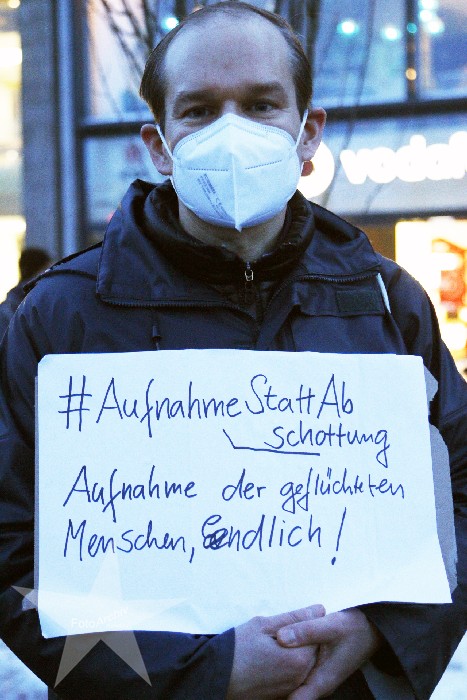 vodaf
#AufnahmeStattAb
schottung
Aufnahme der geflüchteten
Menschen, endlich!